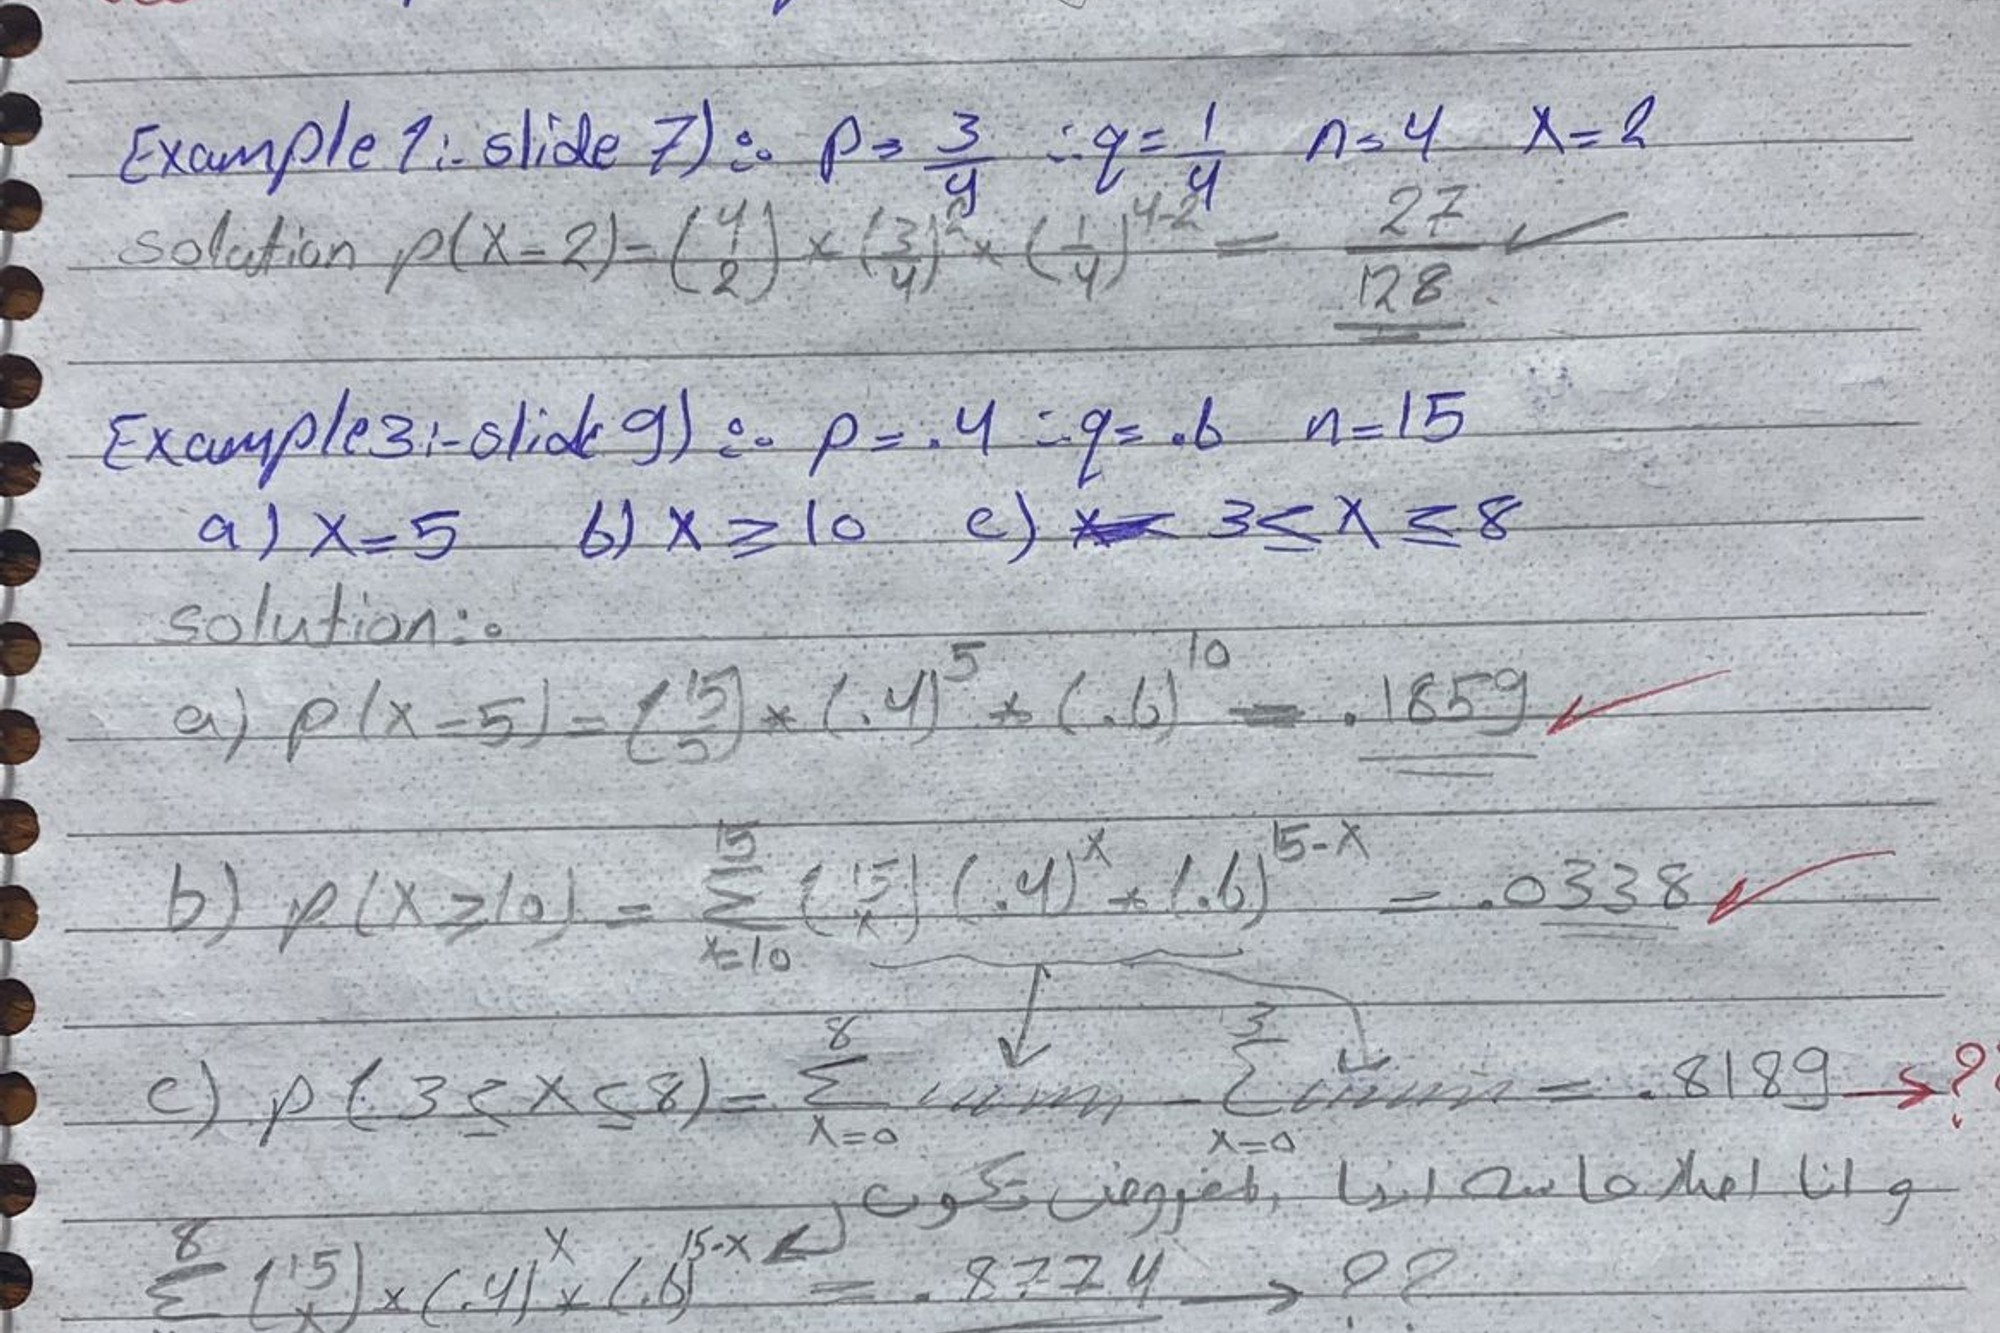 Example 1:- slide 7) :- p = 3/4 ∴ q = 1/4 n = 4 X = 2
solution p(X = 2) = (4 2) × (3/4)^2 × (1/4)^4-2 = 27/128 ✓
Example 3:- slide 9) :- p = .4 ∴ q = .6 n = 15
a) X = 5 b) X ≥ 10 c) 3 ≤ X ≤ 8
solution:-
a) p(X = 5) = (15 5) * (.4)^5 * (.6)^10 = .1859 ✓
b) p(X ≥ 10) = Σ_{x=10}^{15} (15 x) (.4)^x * (.6)^15-x = .0338 ✓
c) p(3 ≤ X ≤ 8) = Σ_{x=0}^{8} - Σ_{x=0}^{3} = .8189 → ??
و انا المفروض تكون
Σ^8 (15 x) × (.4)^x × (.6)^15-x = .8774 → ??